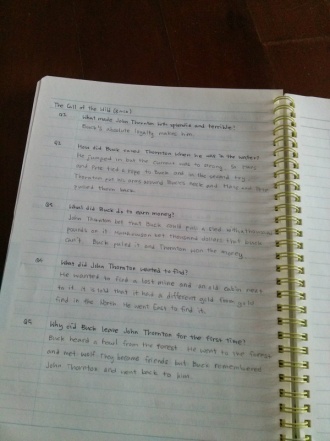 The Call of the Wild
Q1. What made John Thornton both splendid and terrible?
Buck's absolute loyalty makes him.
Q2. How did Buck saved Thornton when he was in the water?
He jumped in but the current was to strong. So Hans
and Pete tied a rope to Buck and on the second try
Thornton put his arms around Buck's neck and Hans and Pete
pulled them back.
Q3. What did Buck do to earn money?
John Thornton bet that Buck could pull a sled with a thousand
pounds on it. bet thousand dollars that Buck
can't. Buck pulled it and Thornton won the money.
Q4. What did John Thornton wanted to find?
He wanted to find a lost mine and an old cabin next
to it. It is told that it had a different gold than gold
find in the North. He went East to find it.
Q5. Why did Buck leave John Thornton for the first time?
Buck heard a howl from the forest. He went to the forest
and met wolf. They became friends but Buck remembered
John Thornton and went back to him.